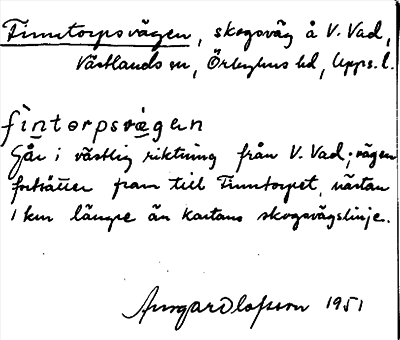 Finntorpsvägen, skogsväg å V. Vad,
Västlands sn, Örbyhus hd, Upps. l.
fintǫrpsvägən
Går i västlig riktning från V. Vad; vägen
fortsätter fram till Finntorpet, nästan
1 km längre än kartans skogsvägslinje.
Ingar Olofsson 1951